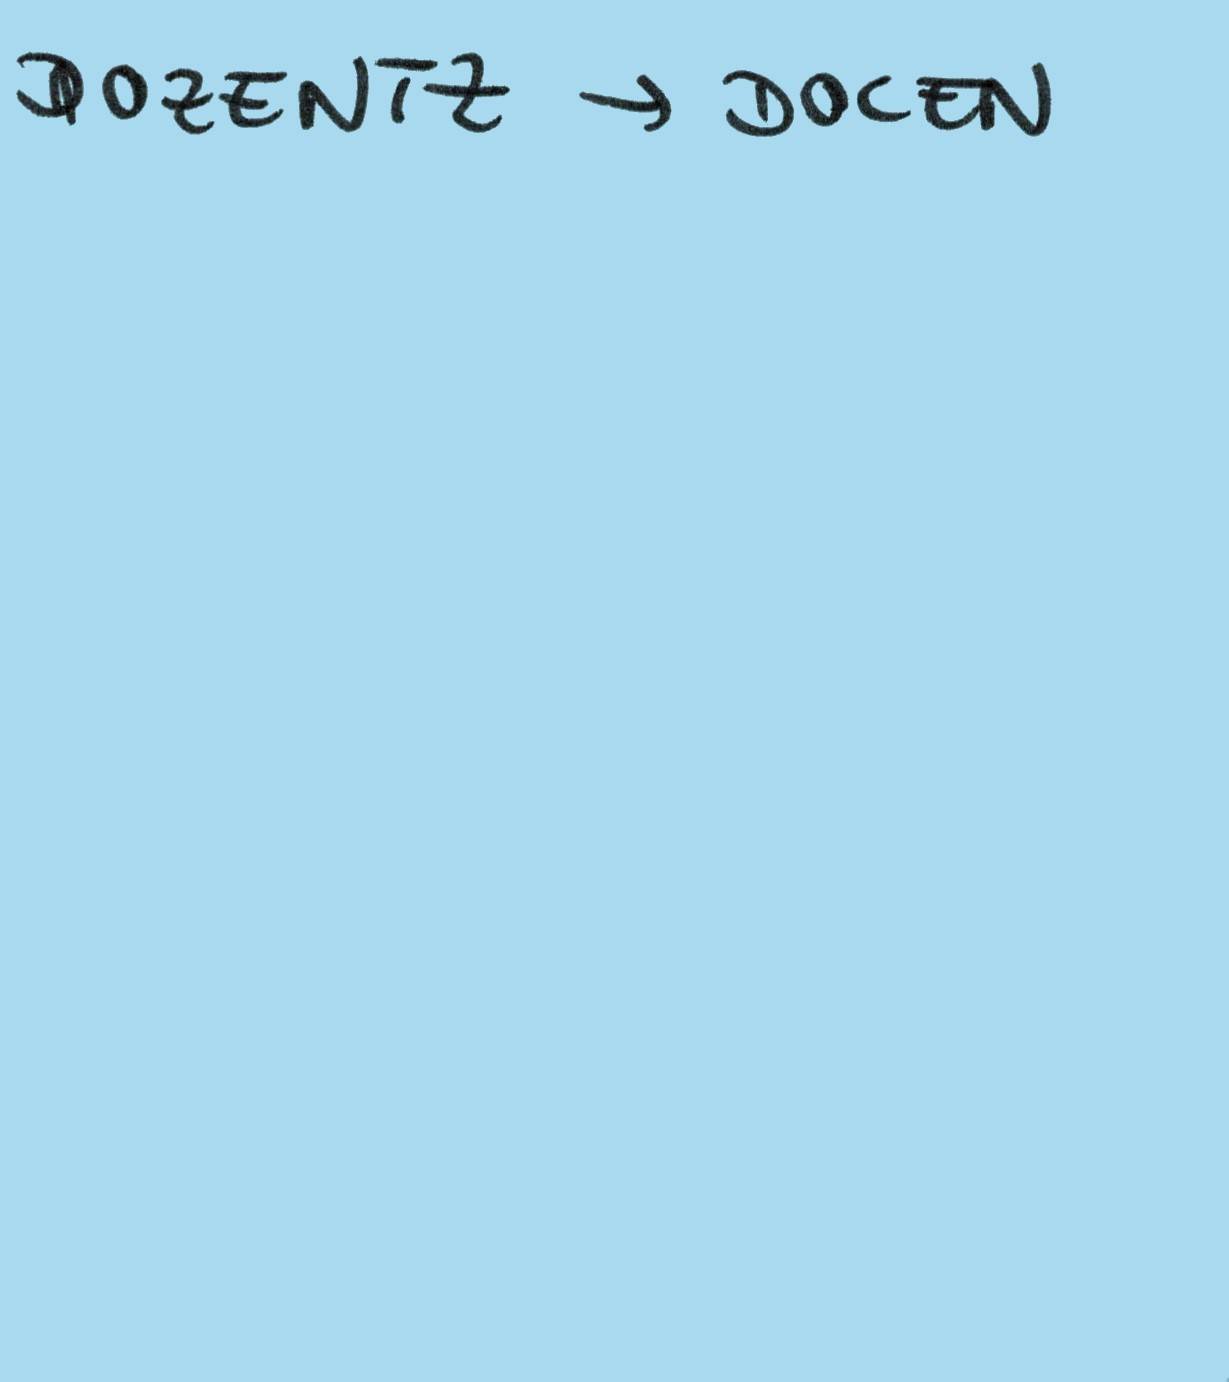 DOZENTZ → DOCEN